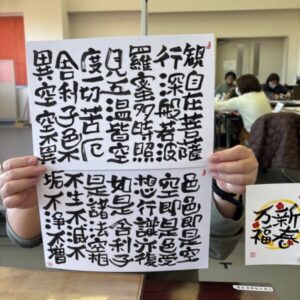 観自在菩薩
行深般若波
羅蜜多時照
見五温皆空
度一切苦厄
舎利子色不
異空空不異
色色即是空
空即是色受
想行識亦復
如是舎利子
是諸法空相
不生不滅不
垢不浄不増
新春
万福